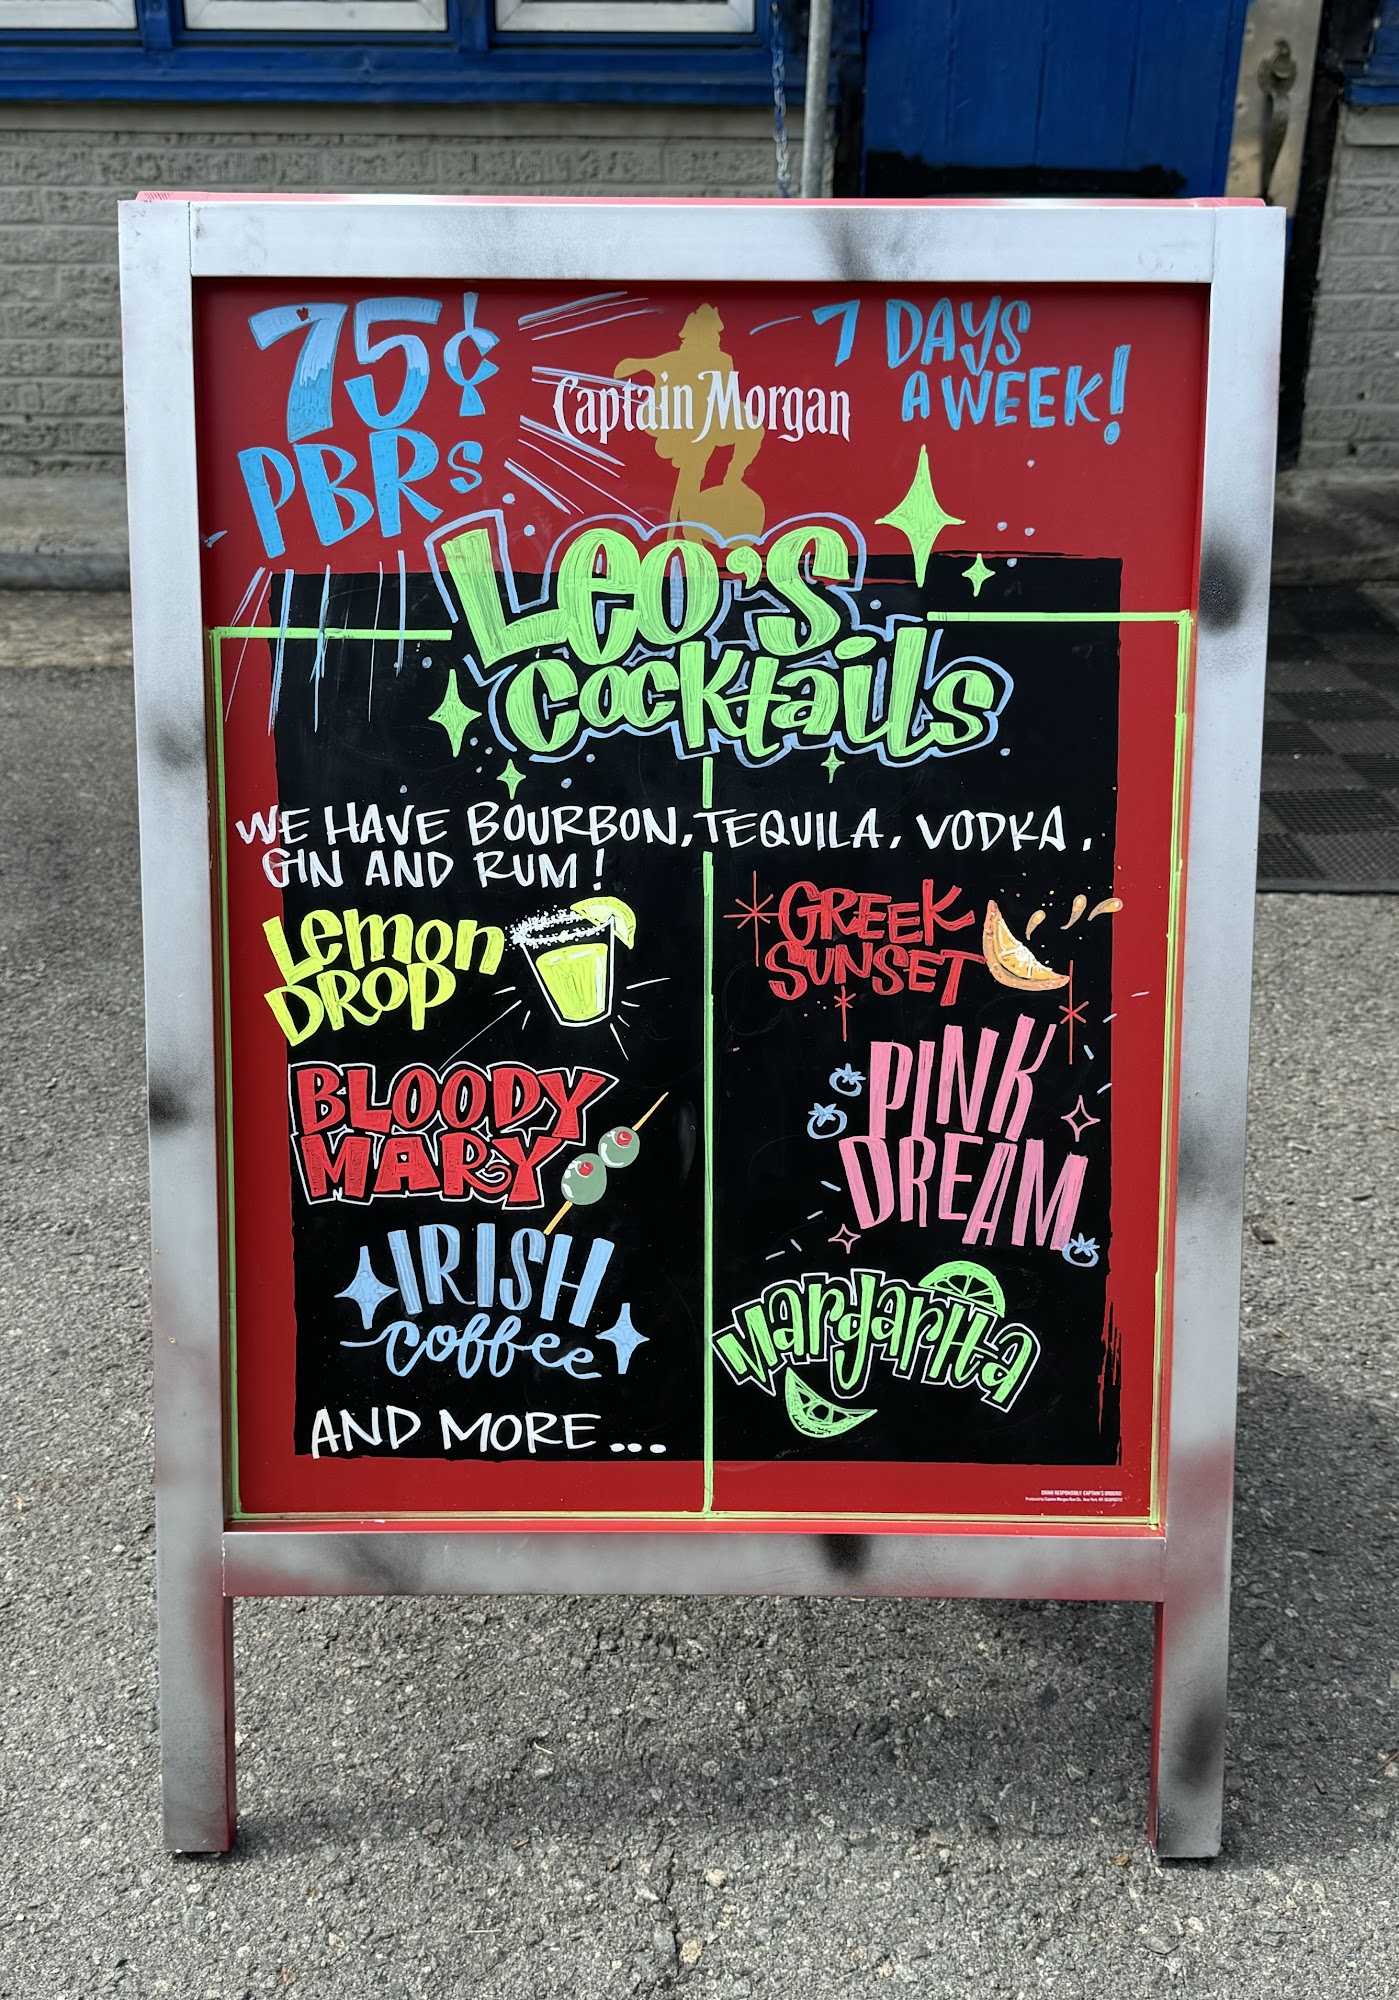 75¢
PBRs
Captain Morgan
7 DAYS
A WEEK!
Leo's
Cocktails
WE HAVE BOURBON, TEQUILA, VODKA,
GIN AND RUM!
Lemon
DROP
BLOODY
MARY
IRISH
coffee
AND MORE...
GREEK
SUNSET
PINK
DREAM
Margarita
DRINK RESPONSIBLY. CAPTAIN'S ORDERS!